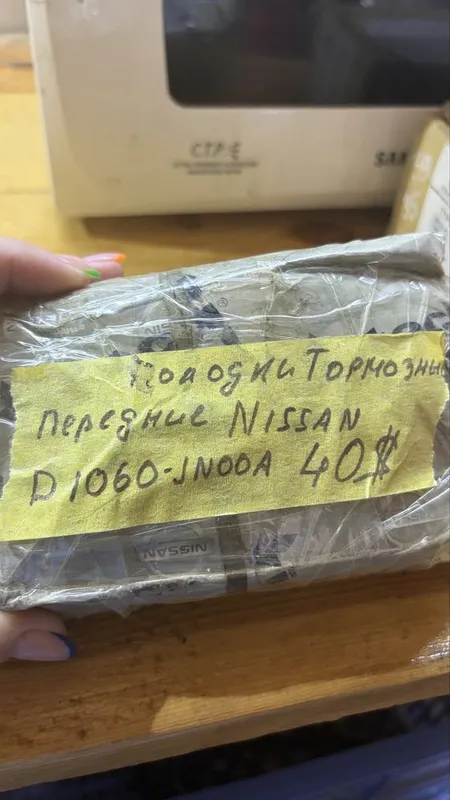 CTP-E
SAM
Колодки Тормозны
передние NISSAN
D1060-JN00A 40$
NISSAN